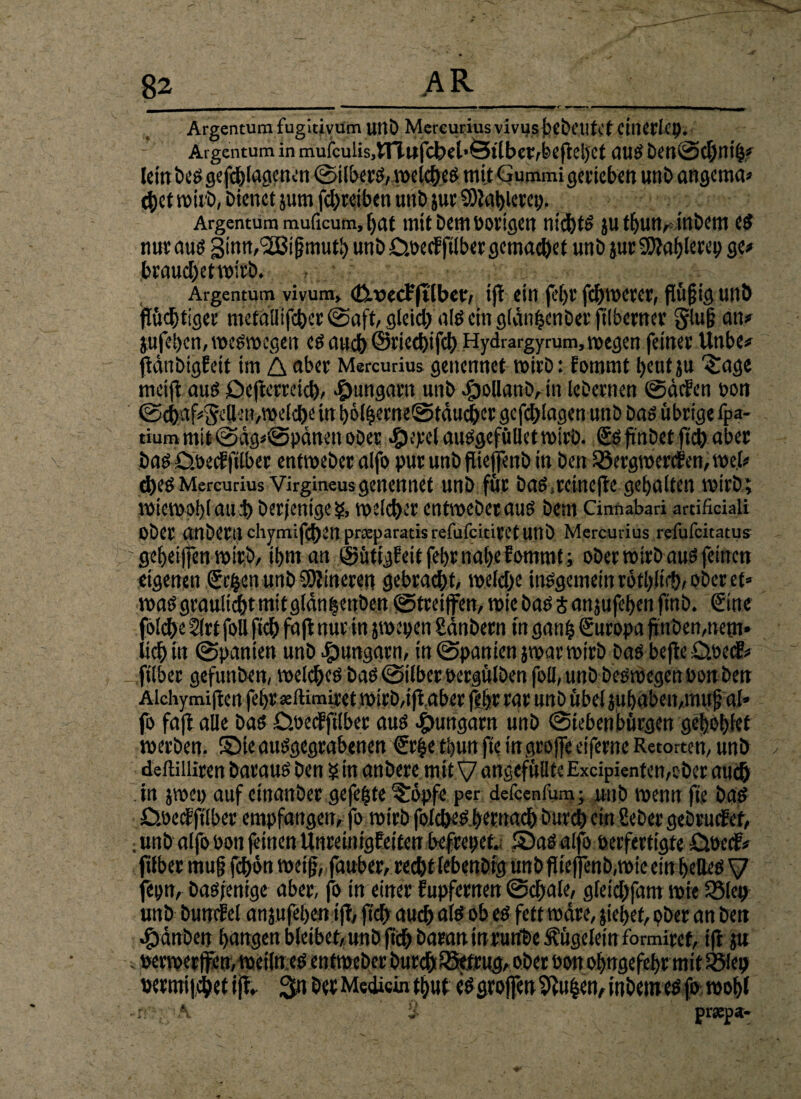 82 AR
Argentum fugitivum und Mercurius vivus bedeutet einerley.
Argentum in musculis, Muschel-Silber, bestehet aus den Schnitz-
lein des geschlagenen Silbers, welches mit Gummi gerieben und angema-
chet wird, dienet zum schreiben und zur Mahlerey.
Argentum musicum, hat mit dem vorigen nichts zu thun, indem es
nur aus Zinn, Wißmuth und Qvecksilber gemachet und zur Mahlerey ge-
brauchet wird.
Argentum vivum, Qvecksilber, ist ein sehr schwerer, flüßig und
flüchtiger metallischer Safft, gleich als ein gläntzender silberner Fluß an-
zusehen, weswegen es auch Griechisch Hydrargyrum, wegen seiner Unbe-
ständigkeit im △ aber Mercurius genennet wird: kommt heut zu Tage
meist aus Oesterreich, Hungarn und Holland, in ledernen Säcken von
Schaf-Fellen, welche in höltzerne Stäucher geschlagen und das übrige spa-
tium mit Säg-Spänen oder Herel ausgefüllet wird. Es findet sich aber
das Qvecksilber entweder also pur und fliessend in den Bergwercken, wel-
ches Mercurius Virgineus genennet und für das reineste gehalten wird;
wiewohl auch derjenige ☿, welcher entweder aus dem Cinnabari artificiali
oder andern chymischen præparatis resuscitiret und Mercurius resuscitatus
geheissen wird, ihm an Gütigkeit sehr nahe kommt; oder wird aus seinen
eigenen Ertzen und Mineren gebracht, welche insgemein röthlich, oder et-
was graulicht mit gläntzenden Streiffen, wie das ♁ anzusehen sind. Eine
solche Art soll sich fast nur in zweyen Ländern in gantz Europa finden, nem-
lich in Spanien und Hungarn, in Spanien zwar wird das beste Qveck-
silber gefunden, welches das Silber vergülden soll, und deswegen von den
Alchymisten sehr æstimiret wird, ist aber sehr rar und übel zu haben, muß al-
so fast alle das Qvecksilber aus Hungarn und Siebenbürgen gehohlet
werden. Die ausgegrabenen Ertze thun sie in grosse eiserne Retorten, und
destilliren daraus den ☿ in andere mit ▽ angefüllte Excipienten, oder auch
in zwey auf einander gesetzte Töpfe per descensum; und wenn sie das
Qvecksilber empfangen, so wird solches hernach durch ein Leder gedrucket,
und also von seinen Unreinigkeiten befreyet. Das also verfertigte Qveck-
silber muß schön weiß, sauber, recht lebendig und fliessend, wie ein helles ▽
seyn, dasjenige aber, so in einer kupfernen Schale, gleichsam wie Bley
und dunckel anzusehen ist, sich auch als ob es fett wäre, ziehet, oder an den
Händen hangen bleibet, und sich daran in runde Kügelein formiret, ist zu
verwerffen, weiln es entweder durch Betrug, oder von ohngefehr mit Bley
vermischet ist. In der Medicin thut es grossen Nutzen, indem es so wohl
præpa-